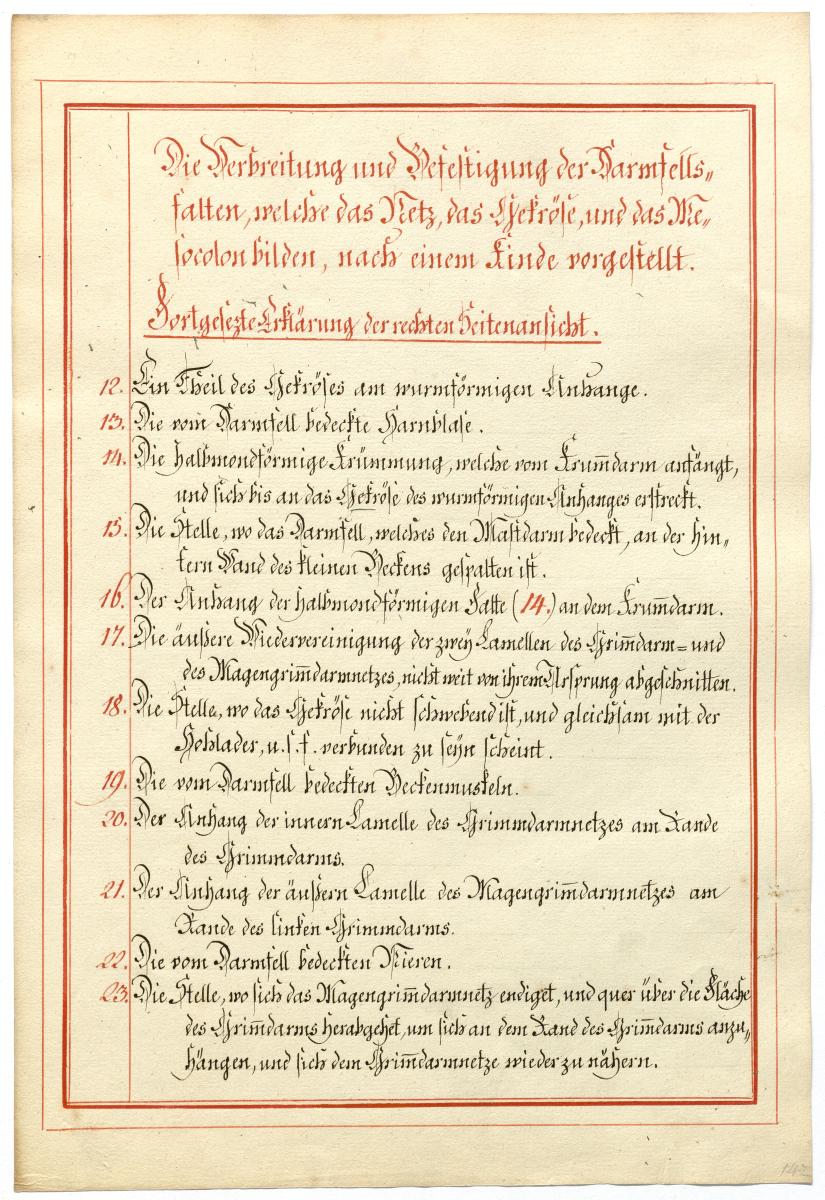 Die Verbreitung und Befestigung der Darmfells„
falten, welche das Netz, das Gekröse, und das Me„
socolon bilden, nach einem Kinde vorgestellt.
Fortgesezte Erklärung der rechten Seitenansicht.
12. Ein Theil des Gekröses am wurmförmigen Anhange.
13. Die vom Darmfell bedeckte Harnblase.
14. Die halbmondförmige Krümmung, welche vom Krum̅darm anfängt,
und sich bis an das Gekröse des wurmförmigen Anhanges erstreckt.
15. Die Stelle, wo das Darmfell, welches den Mastdarm bedeckt, an der hin„
tern Wand des kleinen Beckens gespalten ist.
16. Der Anhang der halbmondförmigen Falte (14.) an dem Krum̅darm.
17. Die äußere Wiedervereinigung der zwey Lamellen des Grim̅darm= und
des Magengrim̅darmnetzes, nicht weit von ihrem Ursprung abgeschnitten.
18. Die Stelle, wo das Gekröse nicht schwebend ist, und gleichsam mit der
Hohlader, u. s. f. verbunden zu seyn scheint.
19. Die vom Darmfell bedeckten Beckenmuskeln.
20. Der Anhang der innern Lamelle des Grimmdarmnetzes am Rande
des Grimmdarms.
21. Der Anhang der äußern Lamelle des Magengrim̅darmnetzes am
Rande des linken Grimmdarms.
22. Die vom Darmfell bedeckten Nieren.
23. Die Stelle, wo sich das Magengrim̅darmnetz endiget, und quer über die Fläche
des Grim̅darms herabgehet, um sich an dem Rand des Grim̅darms anzu„
hängen, und sich dem Grim̅darmnetze wieder zu nähern.
142